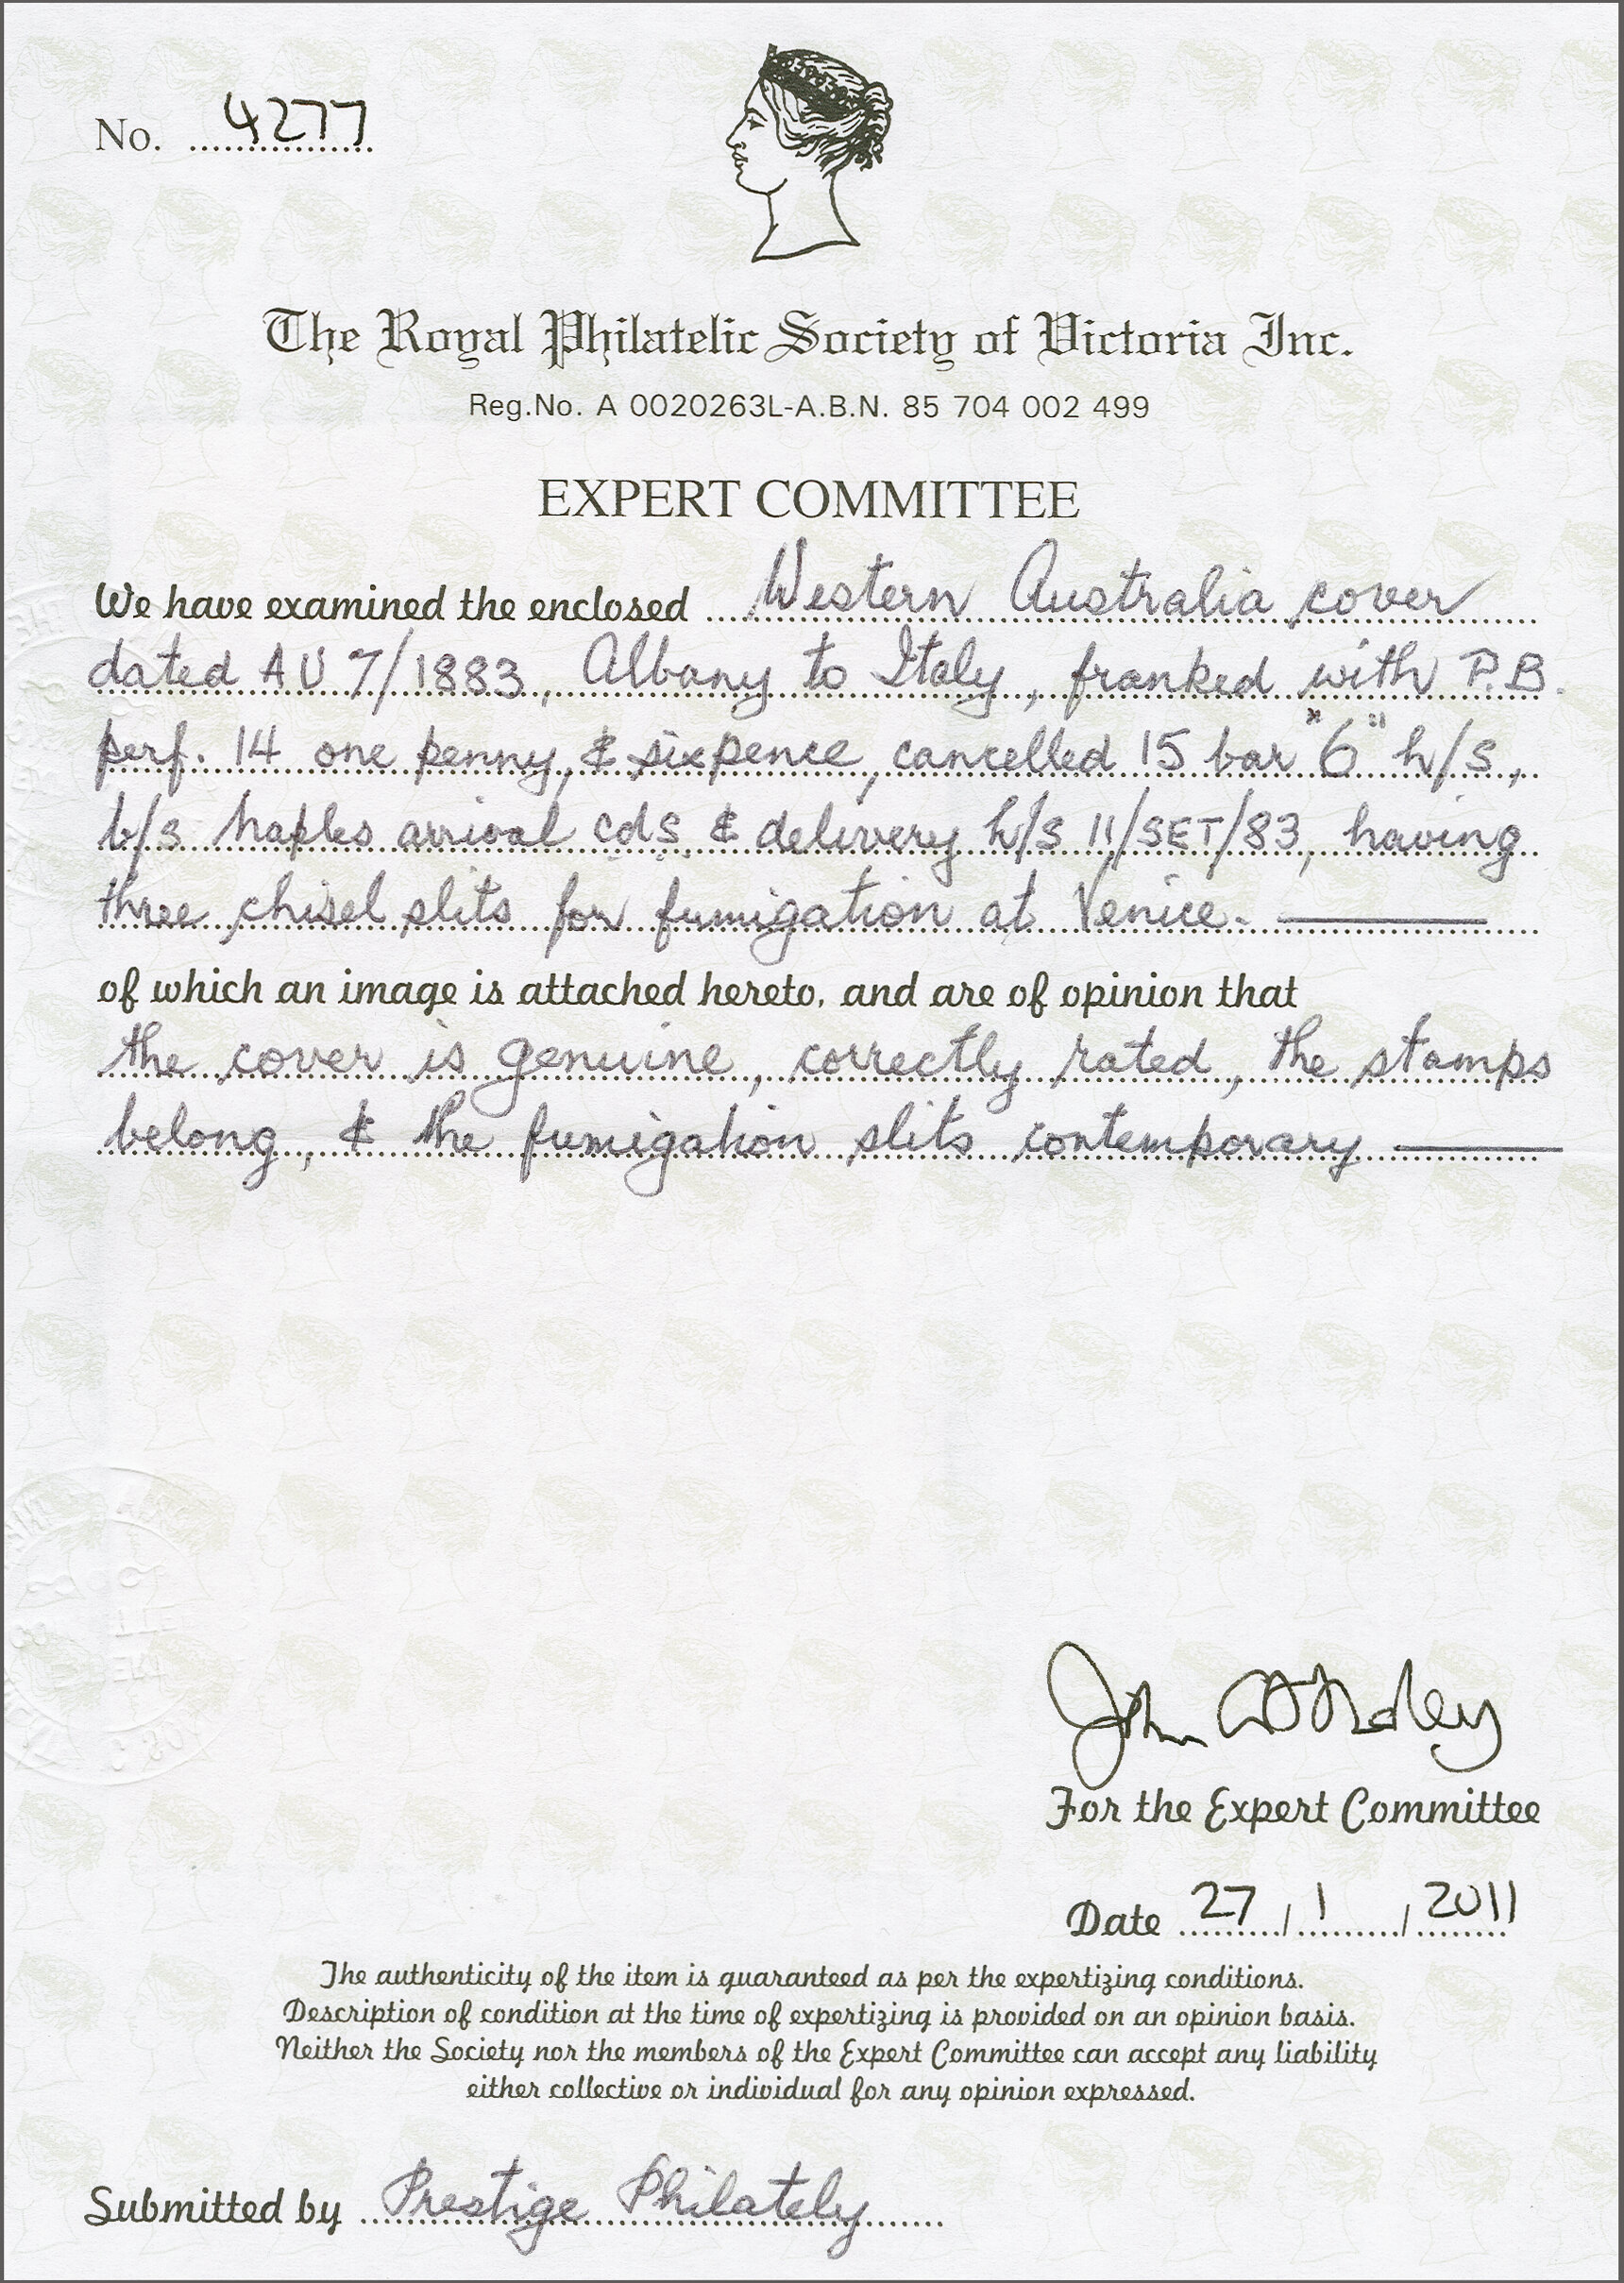 No. 4277
The Royal Philatelic Society of Victoria Inc.
Reg.No. A 0020263L-A.B.N. 85 704 002 499
EXPERT COMMITTEE
We have examined the enclosed Western Australia cover
dated AU 7/1883, Albany to Italy, franked with P.B.
perf. 14 one penny, & sixpence, cancelled 15 bar "6" h/s,
b/s Naples arrival cds, & delivery h/s 11/SET/83, having
three chisel slits for fumigation at Venice.
of which an image is attached hereto, and are of opinion that
the cover is genuine, correctly rated, the stamps
belong, & the fumigation slits contemporary
John
For the Expert Committee
Date 27/1/2011
The authenticity of the item is guaranteed as per the expertizing conditions.
Description of condition at the time of expertizing is provided on an opinion basis.
Neither the Society nor the members of the Expert Committee can accept any liability
either collective or individual for any opinion expressed.
Submitted by Prestige Philately